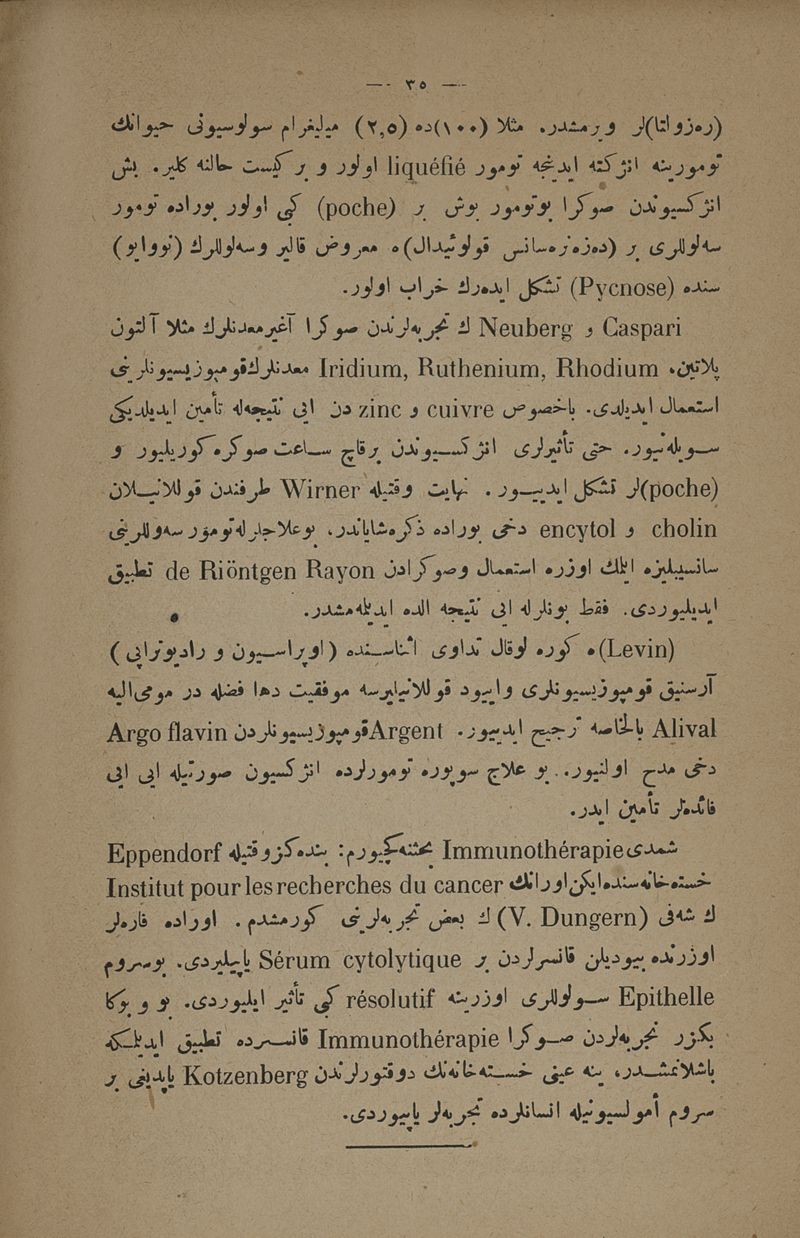 — ٣٥ —
(ره‌زولتا)لر ويرمشدر. مثلا (١٠٠)ده (٢,٥) ميليغرام سولوسيونى حيوانك
تومورينه انژكته ايدنجه تومور liquéfié اولور و بر كيست حالنه كلير. بش
انژكسيوندن صوكرا بوتومور بوش بر (poche) كى اولور بوراده تومور
سه‌لوللرى بر (ده‌ژه‌نره‌سانس قولوئيدال)ه معروض قالير وسه‌لوللرك (نووايو)
سنده (Pycnose) تشكل ايده‌رك خراب اولور.
Caspari و Neuberg ك تجربه‌لرندن صوكرا آغيرمعدنلرك مثلا آلتون
پلاتين، Iridium, Ruthenium, Rhodium معدنلرك قومپوزيسيونلرى
استعمال ايديلدى. باخصوص cuivre و zinc دن ايى نتيجه‌لر تأمين ايديلديكى
سويله‌نيور. حتى تأثيرلرى انژكسيوندن برقاچ ساعت صوكره كوريليور و
(poche)لر تشكل ايدييور. نهايت وقتيله Wirner طرفندن قوللانيلان
cholin و encytol دخى بوراده ذكره‌شاياندر، بوعلاجلرله تومور سه‌لوللرينى
سانسيبليزه ايتمك اوزره استعمال وصوكرادن de Riöntgen Rayon تطبيق
ايديليوردى. فقط بونلرله ايى نتيجه الده ايديله‌مشدر.
(Levin)ه كوره لوقال تداوى اثناسنده (اوپراسيون و راديوتراپى)
آرسنيق قومپوزيسيونلرى وايود قوللانيليرسه موفقيت دها فضله در مومى‌اليه
Alival بالخاصه ترجيح ايدييور. Argent قومپوزيسيونلردن Argo flavin
دخى مدح اولنيور.. بو علاج سوپوره تومورلرده انژكسيون صورتيله ايى ايى
فائده‌لر تأمين ايدر.
شمدى Immunothérapie بحثنه كچيورم: بنده‌كز وقتيله Eppendorf
خسته‌خانه‌سنده‌ايكن اورانك Institut pour les recherches du cancer
ك شفى (V. Dungern) ك بعض تجربه‌لرينى كورمشدم. اوراده فاره‌لر
اوزرنده بيوديلن قانسرلردن بر Sérum cytolytique ياپيليردى. بوسروم
Epithelle سه‌لوللرى اوزرينه résolutif كى تأثير ايليوردى. بو و بوكا
بكزر تجربه‌لردن صوكرا Immunothérapie قانسرده تطبيق ايديلمكه
باشلانمشدر، ينه عينى خسته‌خانه‌نك دوقتورلرندن Kotzenberg ياپديغى بر
سروم أمولسيونيله انسانلرده تجربه‌لر ياپيوردى.